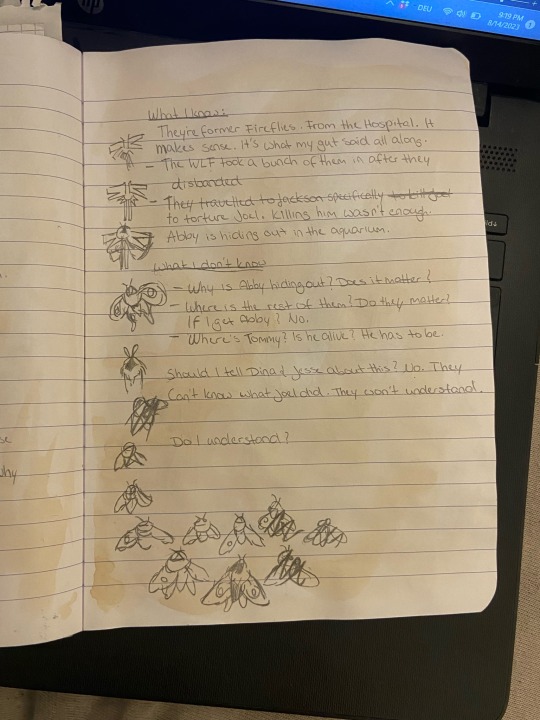 hp
DEU
9:19 PM
8/14/2023
What I know:
Theyre former Fireflies. From the Hospital. It
makes sense. It's what my gut said all along.
- The WLF took a bunch of them in after they
disbanded
- They travelled to Jackson specifically to kill Joel
to torture Joel. Killing him wasn't enough.
Abby is hiding out in the aquarium.
What I don't know
- Why is Abby hiding out? Does it matter?
- Where is the rest of them? Do they matter?
If I get Abby? No.
- Where's Tommy? Is he alive? He has to be.
Should I tell Dina & Jesse about this? No. They
Can't know what Joel did. They won't understand.
Do I understand?